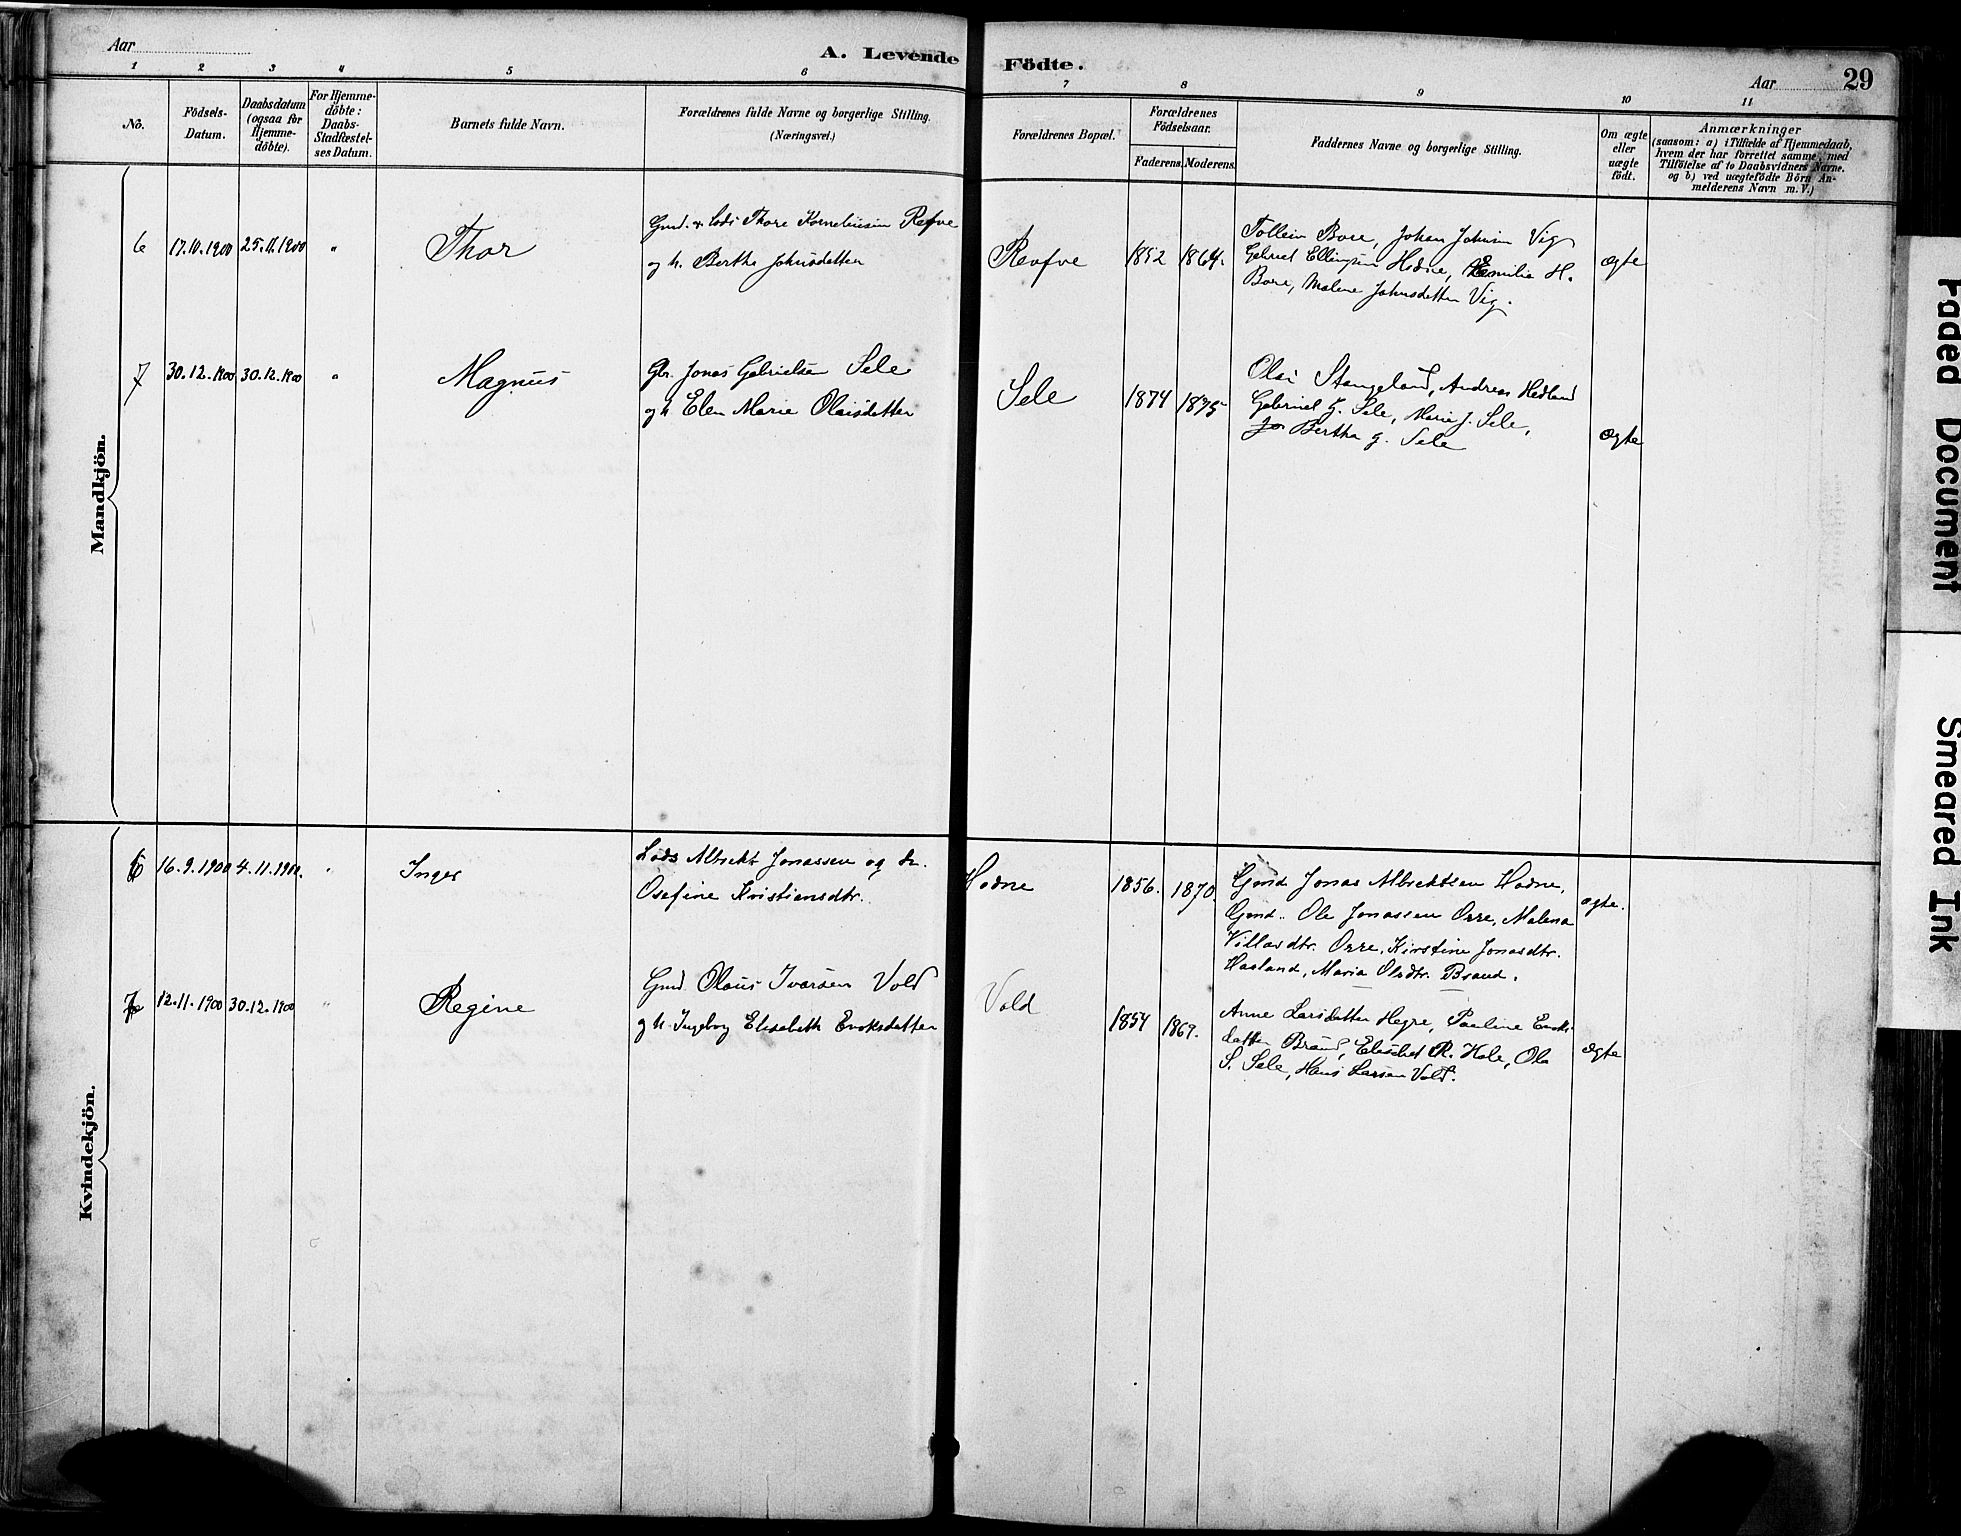 Aar
A. Levende Födte.
Aar 29
1 2 3 4 5 6 7 8 9 10 11
No.
Födsels-
Datum.
Daabsdatum
(ogsaa for
Hjemme-
döbte).
For Hjemme-
döbte:
Daabs-
Stadfæstel-
ses Datum.
Barnets fulde Navn.
Forældrenes fulde Navne og borgerlige Stilling.
(Næringsvei.)
Forældrenes Bopæl.
Forældrenes
Födselsaar.
Faderens. Moderens.
Faddernes Navne og borgerlige Stilling.
Om ægte
eller
uægte
födt.
Anmærkninger
(saasom: a) i Tilfælde af Hjemmedaab,
hvem der har forrettet samme, med
Tilföielse af to Daabsvidners Navne.
og b) ved uægtefödte Börn An-
melderens Navn m. V.)
Mandkjön.
6 17.10.1900 25.11.1900 " Thor
Gmd. & Lods Thore Korneliussen Refve
og h. Bertha Johnsdatter
Revfve 1852 1864.
Tollein Bore, Johan Johnsen Vig
Gabriel Ellingsen Hodne, Emilie H.
Bore, Malene Johnsdatter Vig.
ægte
7 30.12.1900 30.12.1900 " Magnus
Gbr. Jonas Gabrielsen Sele
og h. Elen Marie Olaisdatter
Sele 1874 1875
Olai Stangeland, Andreas Hedland
Gabriel G. Sele, Marie J. Sele,
Bertha G. Sele
ægte
Kvindekjön.
6 16.9.1900 4.11.1900. " Inger
Lods Albrekt Jonassen og h.
Osefine Kristiensdtr.
Hodne 1856. 1870.
Gmd. Jonas Albrektsen Hodne,
Gmd. Ole Jonassen Orre, Malena
Villasdtr. Orre, Kirstine Jonasdtr.
Hasland, Maria Olsdtr. Braud.
ægte.
7 12.11.1900 30.12.1900 " Regine
Gmd. Olaus Ivarsen Vold
og h. Ingeborg Elisabeth Enoksdatter
Vold 1854 1869.
Anne Larsdatter Hegre, Pauline Enoks-
datter Braud, Elisabet R. Hole, Ola
S. Sele, Hans Larsen Vold.
ægte
Faded Document
Smeared Ink